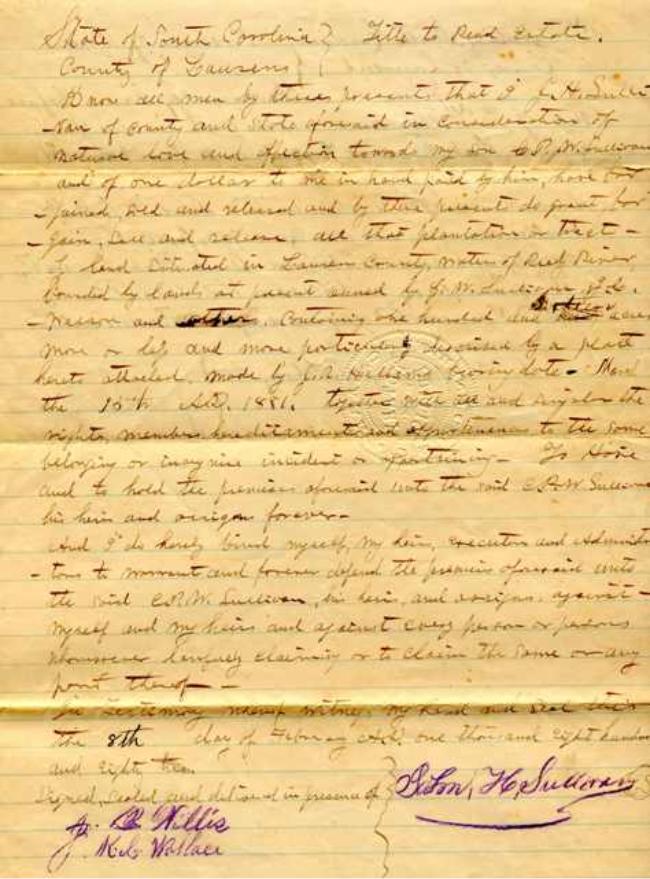 State of South Carolina } Title to Real Estate.
County of Laurens }
Know all men by these present that I J. H. Sulli
-van of County and State aforesaid in Consideration of
natural love and affection towards my son C.P.W. Sullivan
and of one dollar to me in hand paid by him, have bar
-gained, sold and released and by these present do grant bar
-gain, sell and release, all that plantation or tract -
of land situated in Laurens County, waters of Reedy River,
bounded by lands at present owned by J. W. Sullivan,
-Wasson and others. Containing one hundred and acres
more or less and more particularly described by a platt
hereto attached, made by bearing date - March
the 15th A.D. 1881. together with all and singular the
rights, members, hereditaments and appurtenances to the same
belonging or in anywise incident or pertaining - To Have
and to hold the premises aforesaid unto the said C.P.W. Sullivan
his heirs and assigns forever -
And I do hereby bind myself, my heirs, executors and administra
-tors to warrant and forever defend the premises aforesaid unto
the said C.P.W. Sullivan, his heirs, and assigns, against -
myself and my heirs and against every person or persons
whomsoever lawfully claiming or to claim the same or any
part thereof - -
In Testimony whereof witness my hand and seal this
the 8th day of February A.D. one thousand eight hundred
and eighty
Signed, Sealed and delivered in presence of } H. Sullivan
Willis
Wallace